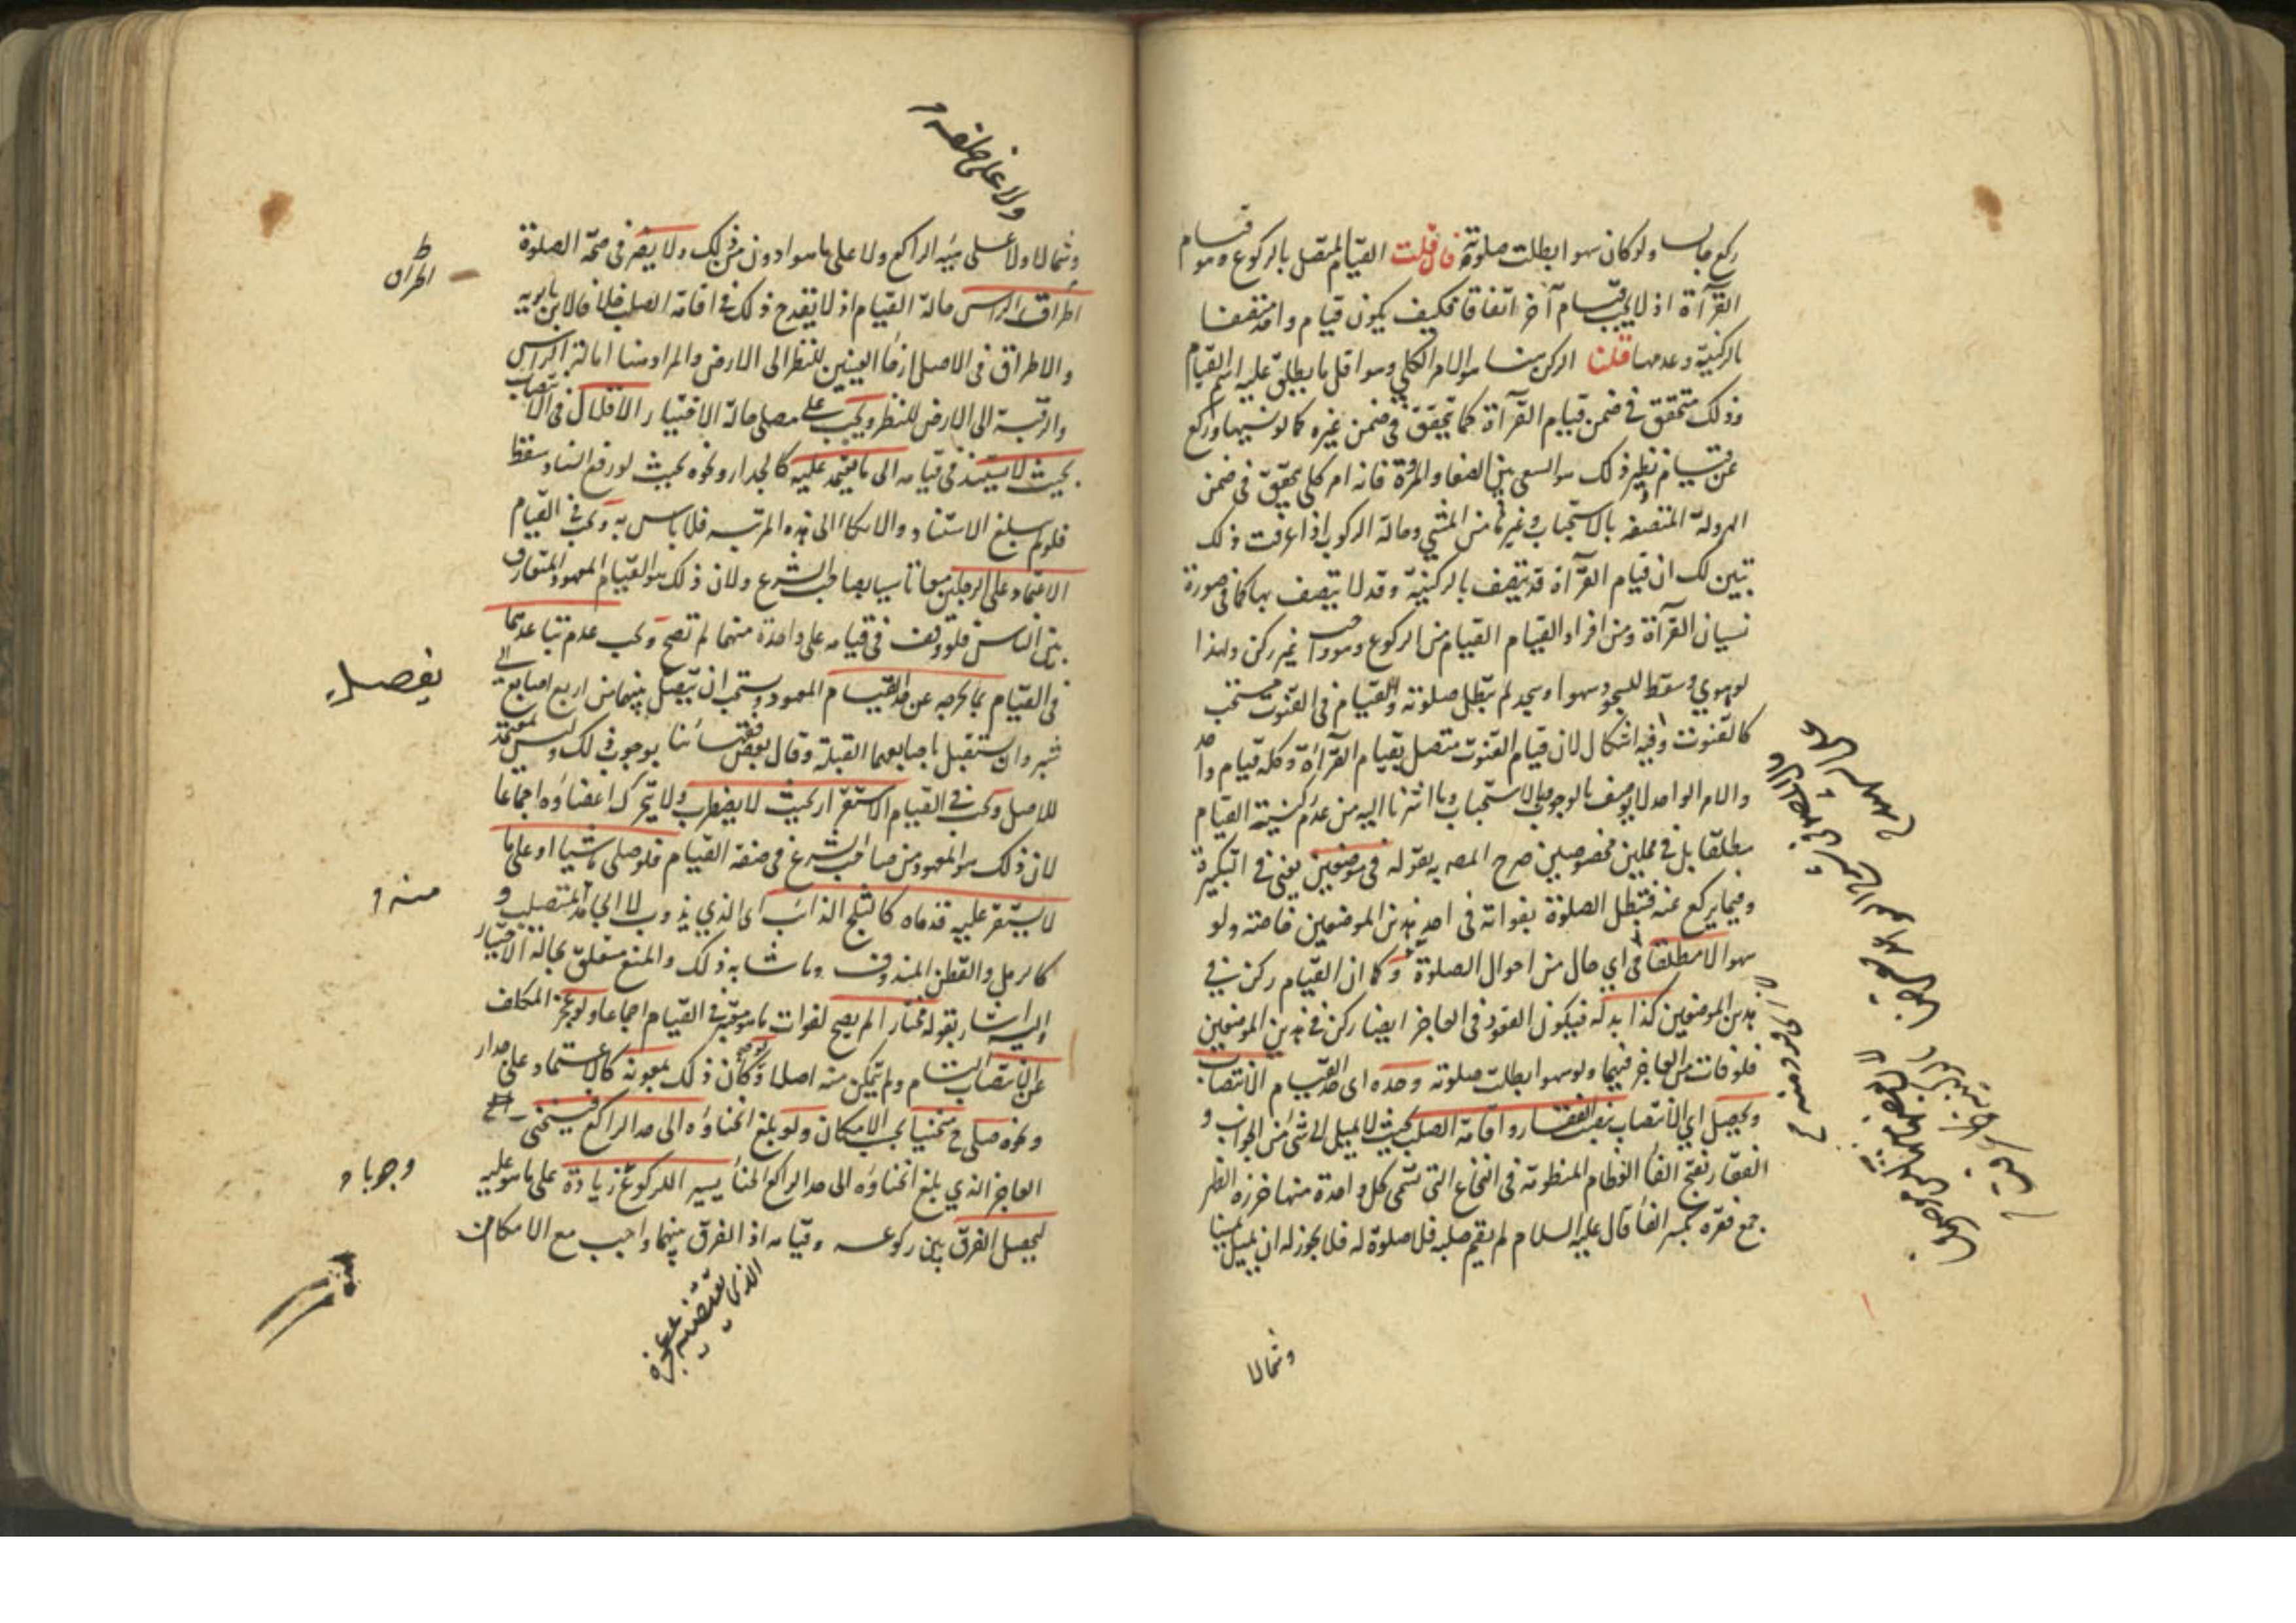 ركع جالسا ولو كان سهوا بطلت صلوته فان قلت القيام المتصل بالركوع هو قيام
القرآة اذ لا يجب قيام آخر اتفاقا فكيف يكون قيام واحد متصفا
بالركنية وعدمها قلنا الركن هنا هو الامر الكلي وهو اقل ما يطلق عليه اسم القيام
وذلك متحقق في ضمن قيام القرآة كما يتحقق في ضمن غيره كما لو نسيها وركع
عن قيام ونظير ذلك هو السعي بين الصفا والمروة فانه امر كلي يتحقق في ضمن
الهرولة المتصفه بالاستحباب وغيرها من المشي وحالة الركوب اذا عرفت ذلك
تبين لك ان قيام القرآة قد يتصف بالركنية وقد لا يتصف بها كما في صورة
نسيان القرآة ومن افراد القيام القيام من الركوع وهو واجب غير ركن ولهذا
لو هوي وسقط للسجود سهوا وسجد لم تبطل صلوته والقيام في القنوت مستحب
كالقنوت وفيه اشكال لان قيام القنوت متصل بقيام القرآة وكله قيام واحد
والامر الواحد لا يوصف بالوجوب والاستحباب وما اشرنا اليه من عدم ركنية القيام
مطلقا بل في محلين مخصوصين صرح المصه به بقوله في موضعين يعني في التكبيرة
وفيما يركع عنه فتبطل الصلوة بفواته في احد هذين الموضعين خاصته ولو
سهوا لا مطلقا في اي حال من احوال الصلوة وكما ان القيام ركن في
هذين الموضعين كذا بدله فيكون القعود في العاجز ايضا ركن في هذين الموضعين
فلو فات من العاجز فيهما ولو سهوا بطلت صلوته وحده اي حد القيام الانتصاب
ويحصل اي الانتصاب بنصب الفقار واقامة الصلب بحيث لا يميل الى شئ من الجوانب و
الفقار بفتح الفا العظام المنظومة في النخاع التي تسمى كل واحدة منها خرزه الظهر
جمع فقره بكسر الفا قال عليه السلام من لم يقم صلبه فلا صلوة له فلا يجوز له ان يميل يمينا
وشمالا
ولا على خلفه و
وشمالا ولا على هيئه الراكع ولا على ما هو ادون من ذلك ولا يضر في صحة الصلوة
اطراق الراس حالة القيام اذ لا يقدح ذلك في اقامة الصلب خلافا لابن بابويه
والاطراق في الاصل ارخا العينين للنظر الى الارض والمراد هنا امالة الراس
والرقبة الى الارض للنظر ويجب على مصلي حالة الاختيار الاقلال في الانتصاب
بحيث لا يستند في قيامه الى ما يعتمد عليه كالجدار ونحوه بحيث لو رفع السناد سقط
فلو لم يبلغ الاستناد والاتكا الى هذه المرتبه فلا باس به ويجب في القيام
الاعتماد على الرجلين معا تاسيا بصاحب الشرع ولان ذلك هو القيام المعهود المتعارف
بين الناس فلو وقف في قيامه على واحدة منهما لم تصح ويجب عدم تباعدهما
في القيام بما يخرجه عن حد القيام المعهود ويستحب ان يفصل بينهما من اربع اصابع الى
شبر وان يستقبل باصابعهما القبلة وقال بعض فقهائنا بوجوب ذلك وليس بمعتمد
للاصل ويجب في القيام الاستقرار بحيث لا يضطرب ولا يتحرك اعضاوه اجماعا
لان ذلك هو المعهود من صاحب الشرع في صفة القيام فلو صلى ماشيا او على ما
لا يستقر عليه قدماه كالثلج الذائب اى الذي يذوب لا الجامد المتصلب و
كالرمل والقطن المندوف وما شابه ذلك والمنع متعلق بحالة الاختيار
واليه اشار بقوله مختارا لم يصح لفوات ما هو معتبر في القيام اجماعا ولو عجز المكلف
عن الانتصاب التام ولم يتمكن منه اصلا وكان ذلك بمعونه كالاعتماد على جدار
ونحوه صلى ح منحنيا بحسب الامكان ولو بلغ انحناؤه الى حد الراكع فينحني
العاجز الذي بلغ انحناؤه الى حد الراكع انحنا يسيرا للركوع زيادة على ما هو عليه
ليحصل الفرق بين ركوعه وقيامه اذ الفرق بينهما واجب مع الامكان
يفصل
منه
وجوبا و